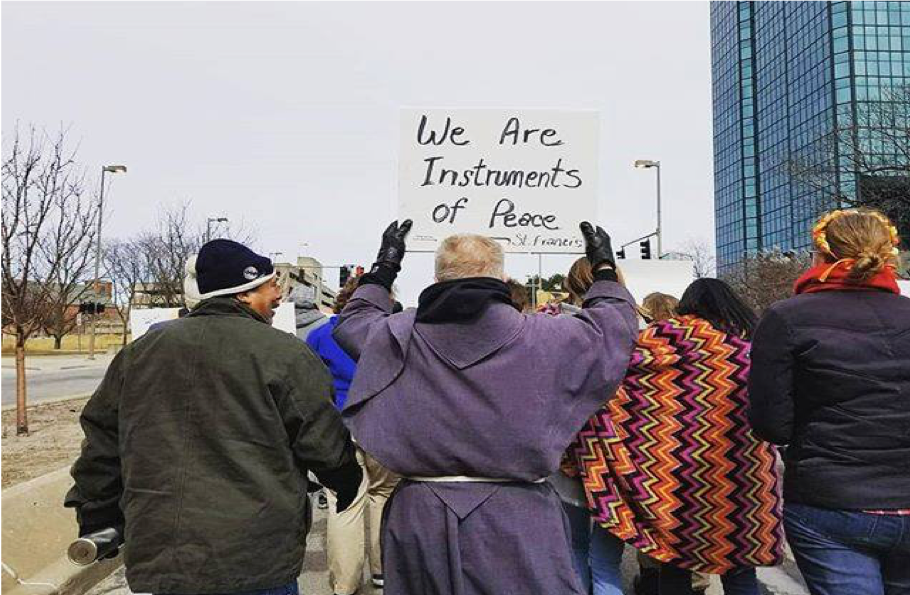 We Are
Instruments
of Peace
St. Francis